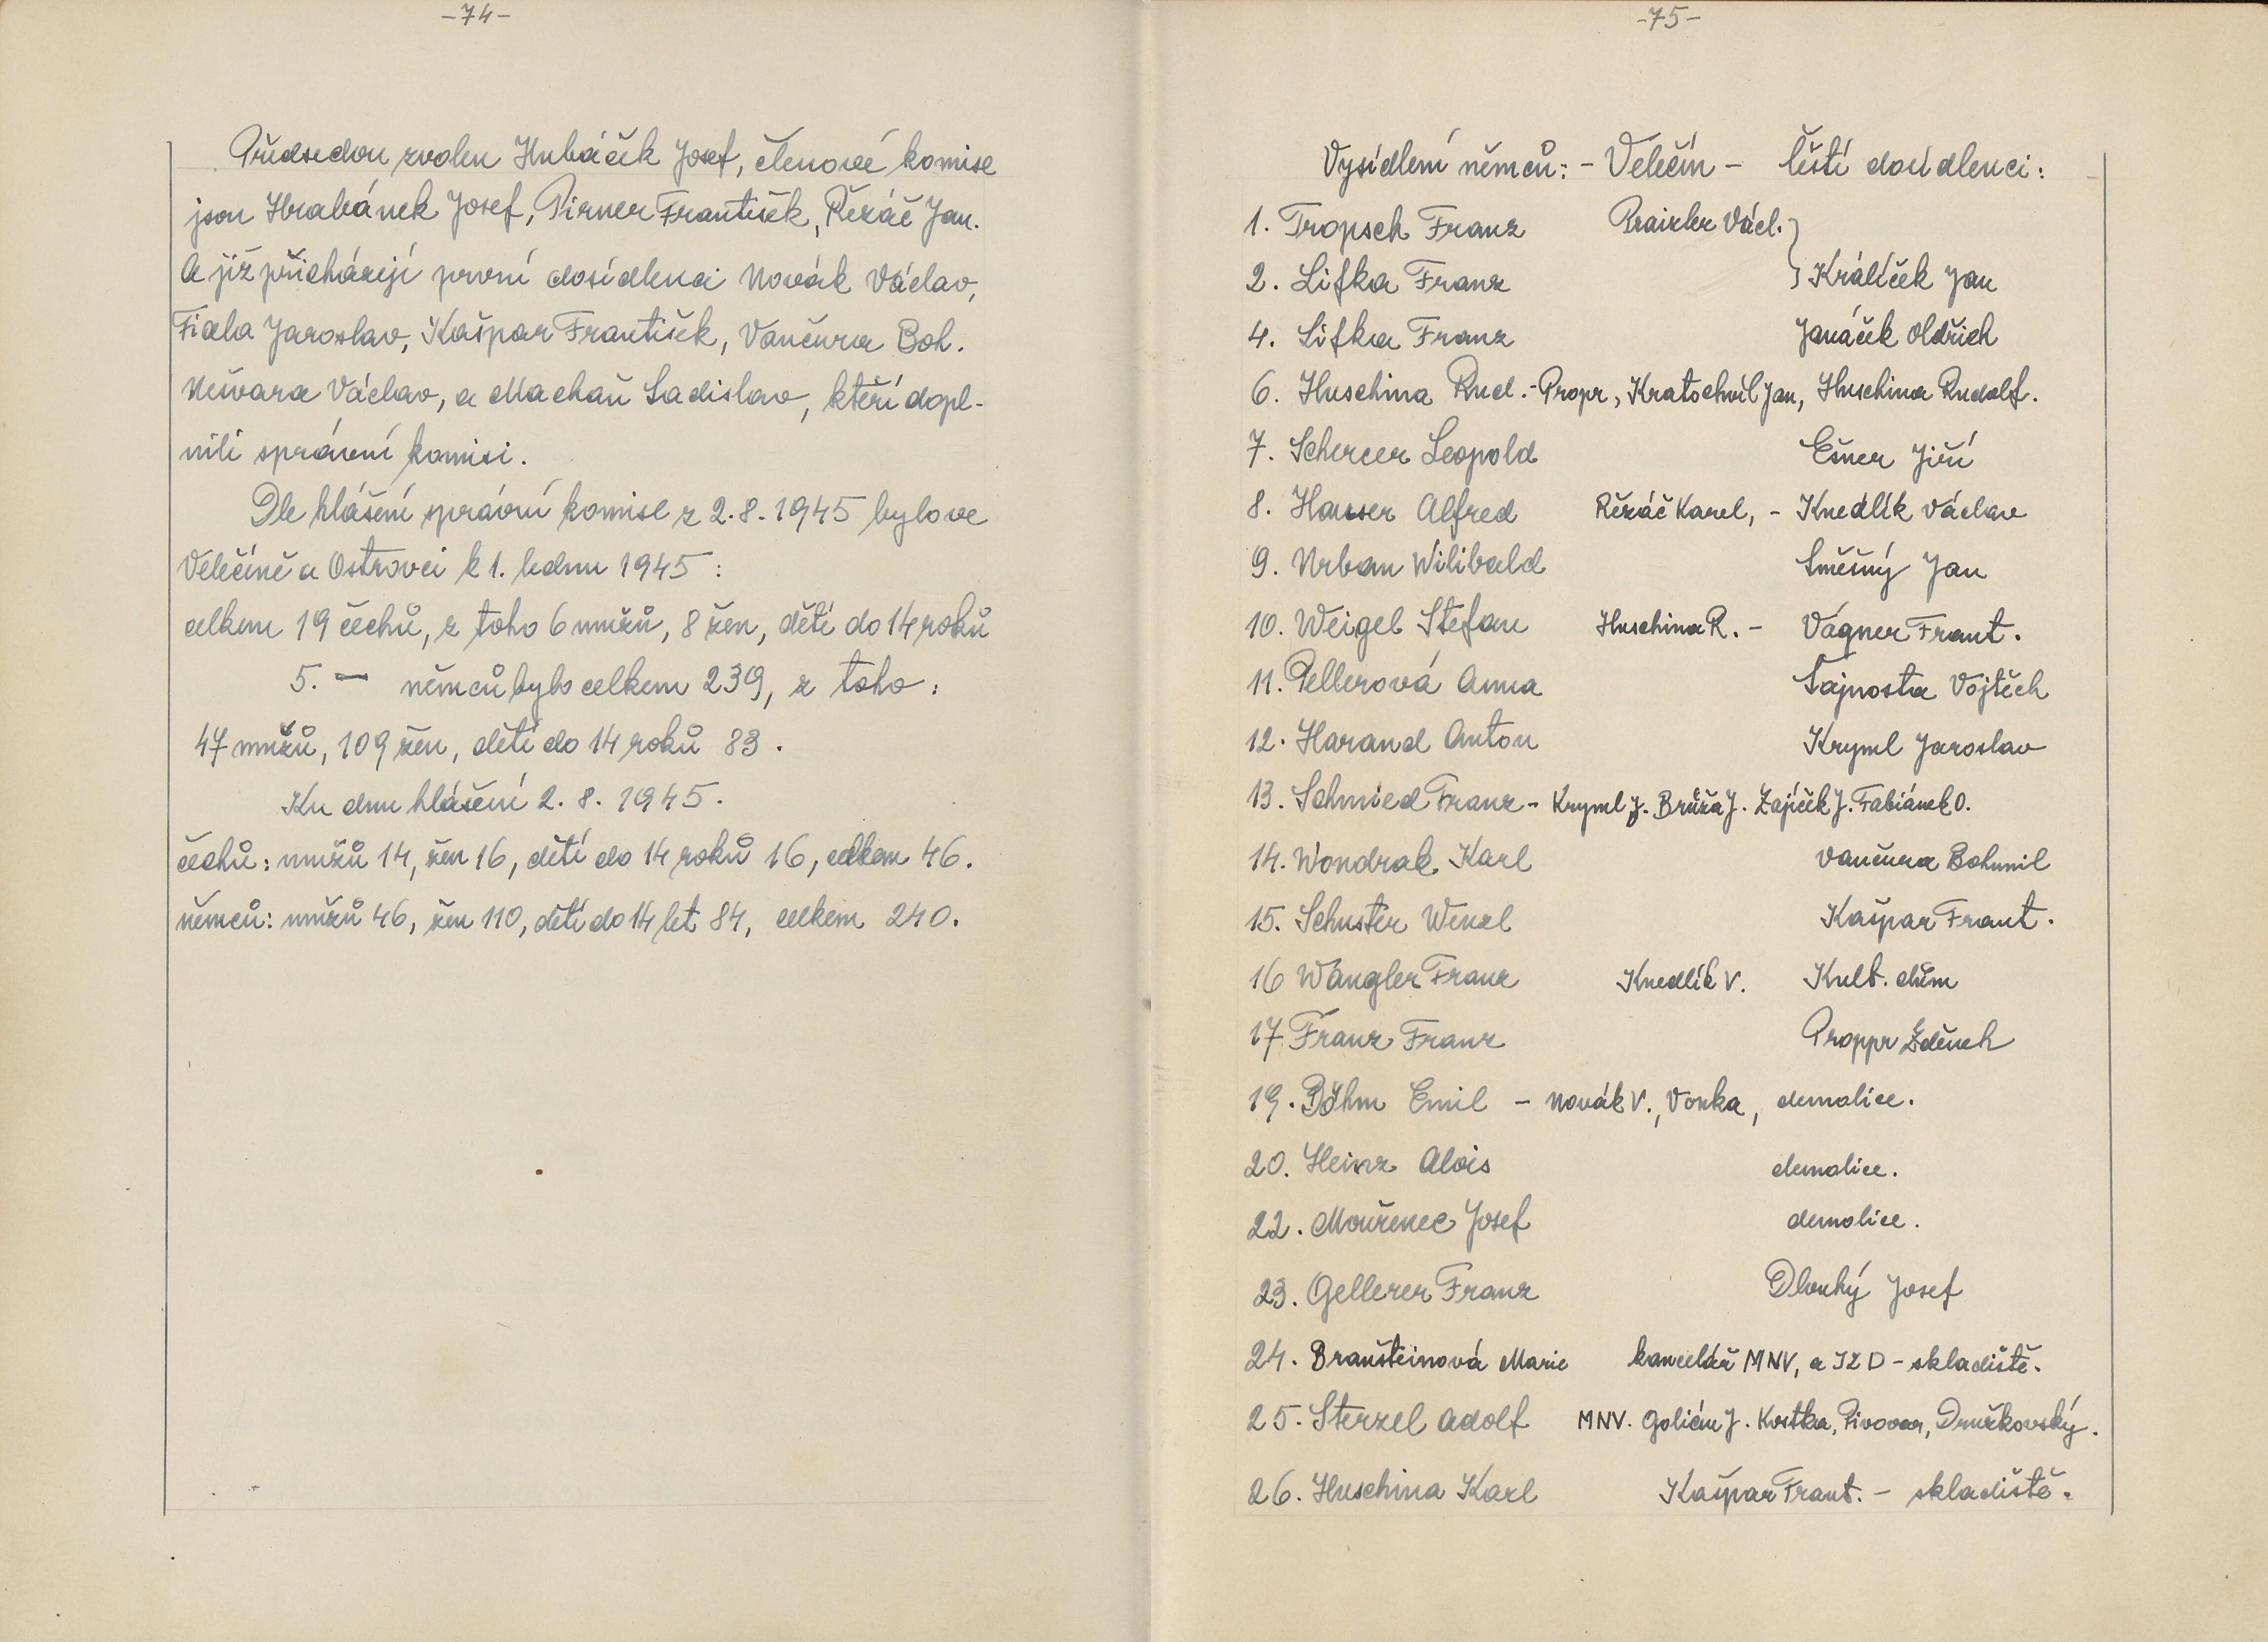 -74-
Předsedou zvolen Hubáček Josef, členové komise
jsou Hrabánek Josef, Pirner František, Řezáč Jan.
A již přicházejí první dosídlenci Novák Václav,
Fiala Jaroslav, Kašpar František, Vančura Boh.
Nešvara Václav, a Machač Ladislav, kteří dopl-
nili správní komisi.
Dle hlášení správní komise z 2.8.1945 bylo ve
Velečíně a Ostrovci k 1. lednu 1945:
celkem 19 čechů, z toho 6 mužů, 8 žen, dětí do 14 roků
5. — němců bylo celkem 239, z toho:
47 mužů, 109 žen, dětí do 14 roků 83.
Ku dnu hlášení 2.8.1945.
čechů: mužů 14, žen 16, dětí do 14 roků 16, celkem 46.
němců: mužů 46, žen 110, dětí do 14 let 84, celkem 240.
-75-
Vysídlení němců: - Velečín - čeští dosídlenci:
1. Tropsch Franz Braizler Václ.
2. Lifka Franz } Králíček Jan
4. Lifka Franz Janáček Oldřich
6. Huschina Rud. - Propr, Kratochvíl Jan, Huschina Rudolf.
7. Schercer Leopold Ešner Jiří
8. Hauser Alfred Řežáč Karel, - Knedlík Václav
9. Urban Wilibald Směšný Jan
10. Weigel Stefan Huschina R. - Vágner Frant.
11. Pellerová Anna Šajnosta Vojtěch
12. Harand Anton Kryml Jaroslav
13. Schmied Franz - Kryml J. Brůža J. Zajíček J. Fabiánek O.
14. Wondrak Karl Vančura Bohumil
15. Schuster Wenzl Kašpar Frant.
16 Wangler Franz Knedlík V. Kult. dům
17 Franz Franz Proppr Zděnek
19. Böhm Emil - Novák V., Vonka, demolice.
20. Heinz Alois demolice.
22. Mouřenec Josef demolice.
23. Gellerer Franz Dlouhý Josef
24. Braušteinová Marie kancelář MNV, a JZD - skladiště.
25. Sterzel Adolf MNV. Golián J. Kostka, Pivovar, Družkovský.
26. Huschina Karl Kašpar Frant. - skladiště.